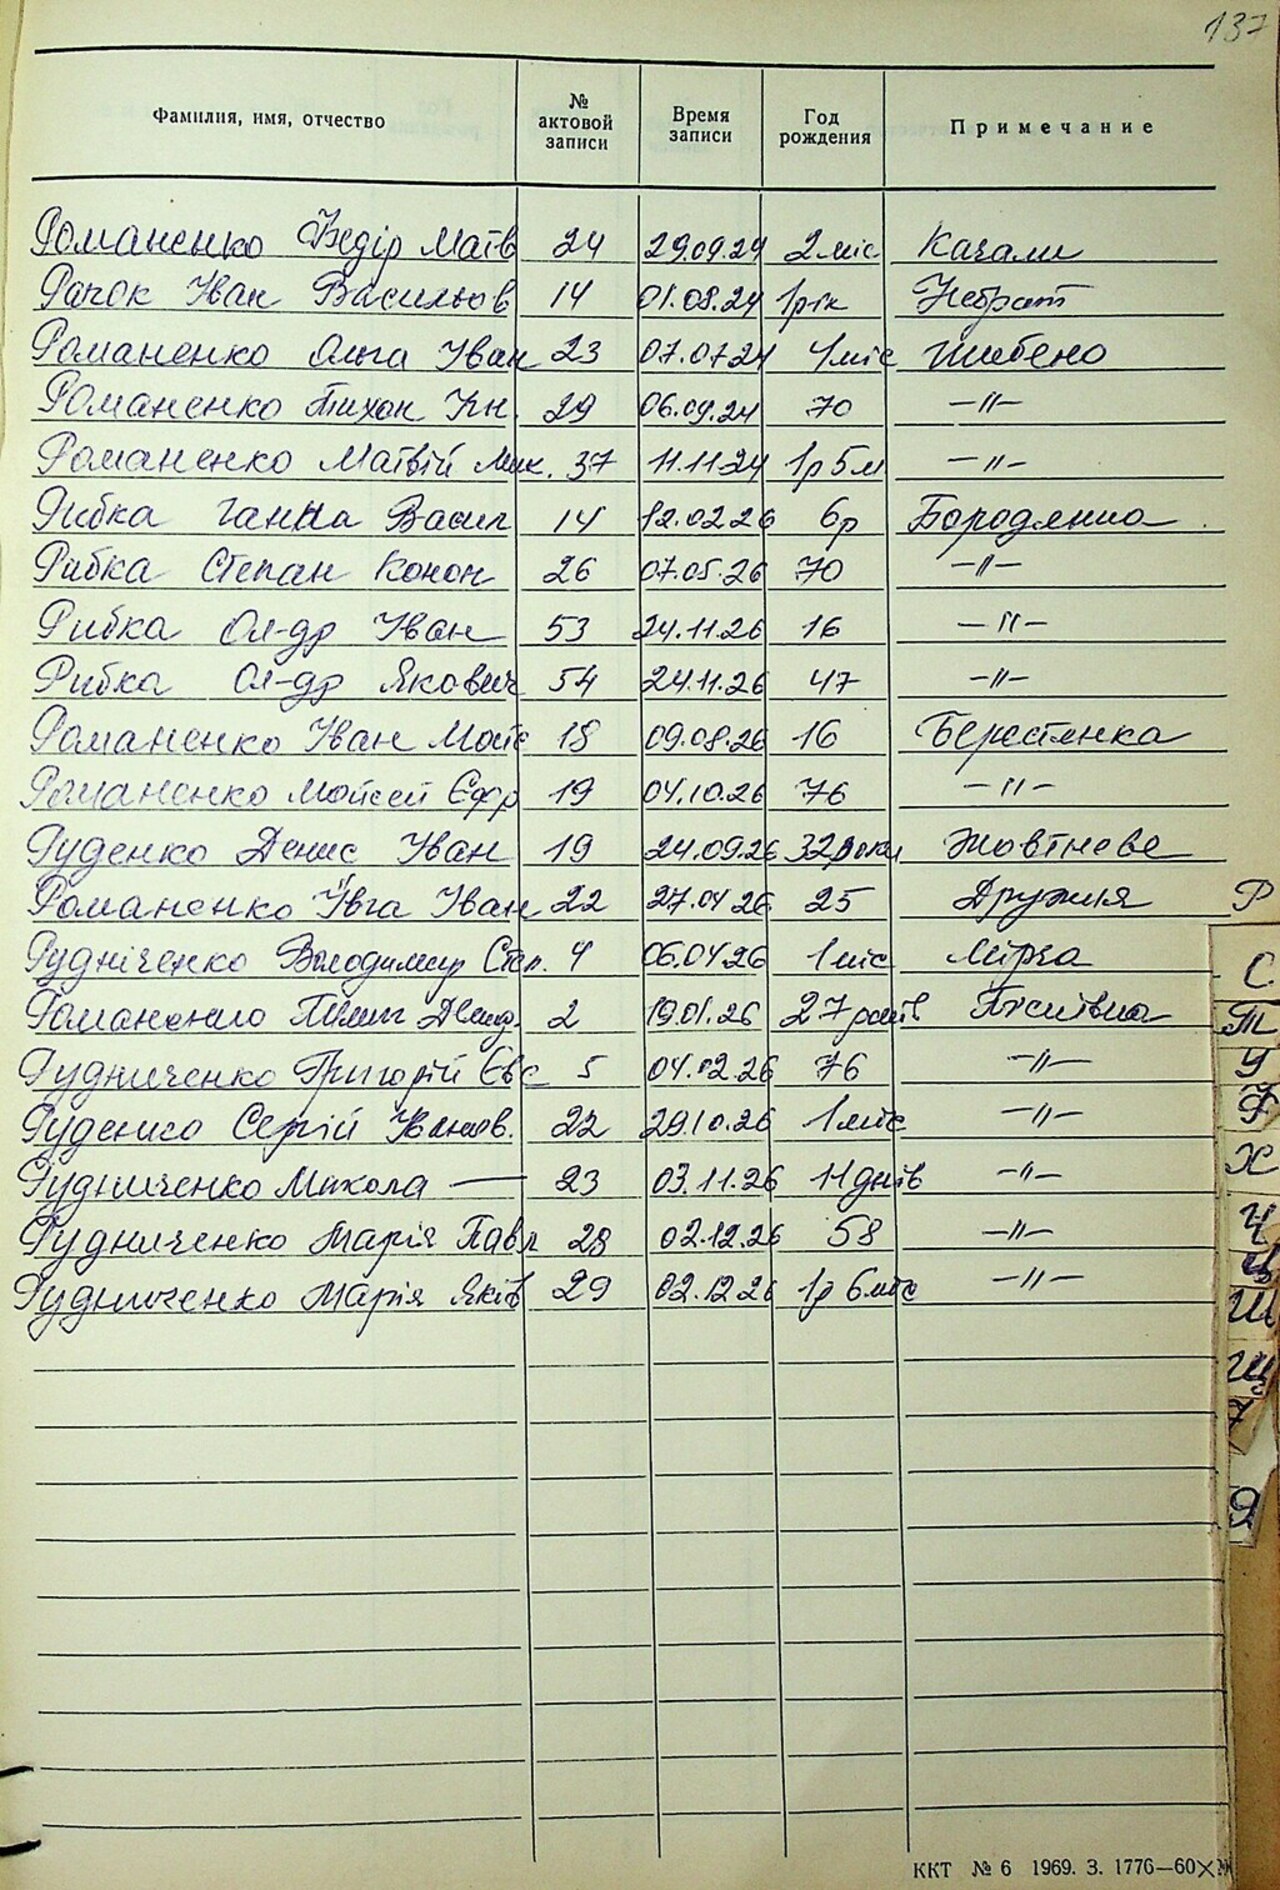 137
Фамилия, имя, отчество № актовой записи Время записи Год рождения Примечание
Романенко Федір Матв 24 29.09.24 2 міс Качали
Рапок Іван Васильов 14 01.08.24 1рік Небрат
Романенко Ольга Іван 23 07.07.24 4міс Шибено
Романенко Тихон Кн. 29 06.09.24 70 —//—
Романенко Матвій Мик. 37 11.11.24 1р 5м —//—
Рибка Ганна Васил 14 12.02.26 6р Бородянка
Рибка Степан Конон 26 07.05.26 70 —//—
Рибка Ол-др Іван 53 24.11.26 16 —//—
Рибка Ол-др Якович 54 24.11.26 47 —//—
Романенко Іван Мойс 18 09.08.26 16 Берестянка
Романенко Мойсей Єфр 19 04.10.26 76 —//—
Руденко Денис Іван 19 24.09.26 32роки Жовтневе
Романенко Ївга Іван 22 27.04.26 25 Дружня
Рудніченко Володимир Степ. 4 06.04.26 1міс Мірча
Романенко Пилип 2 19.01.26 27років
Рудниченко Григорій Євс 5 04.02.26 76 —//—
Руденко Сергій Іванов. 22 29.10.26 1міс —//—
Рудниченко Микола — 23 03.11.26 11днів —//—
Рудниченко Марія Павл 28 02.12.26 58 —//—
Рудниченко Марія Яків 29 02.12.26 1р 6міс —//—
Р
С
Т
У
Ф
Х
Ч
Ц
Ш
Щ
Я
ККТ № 6 1969. З. 1776—60×